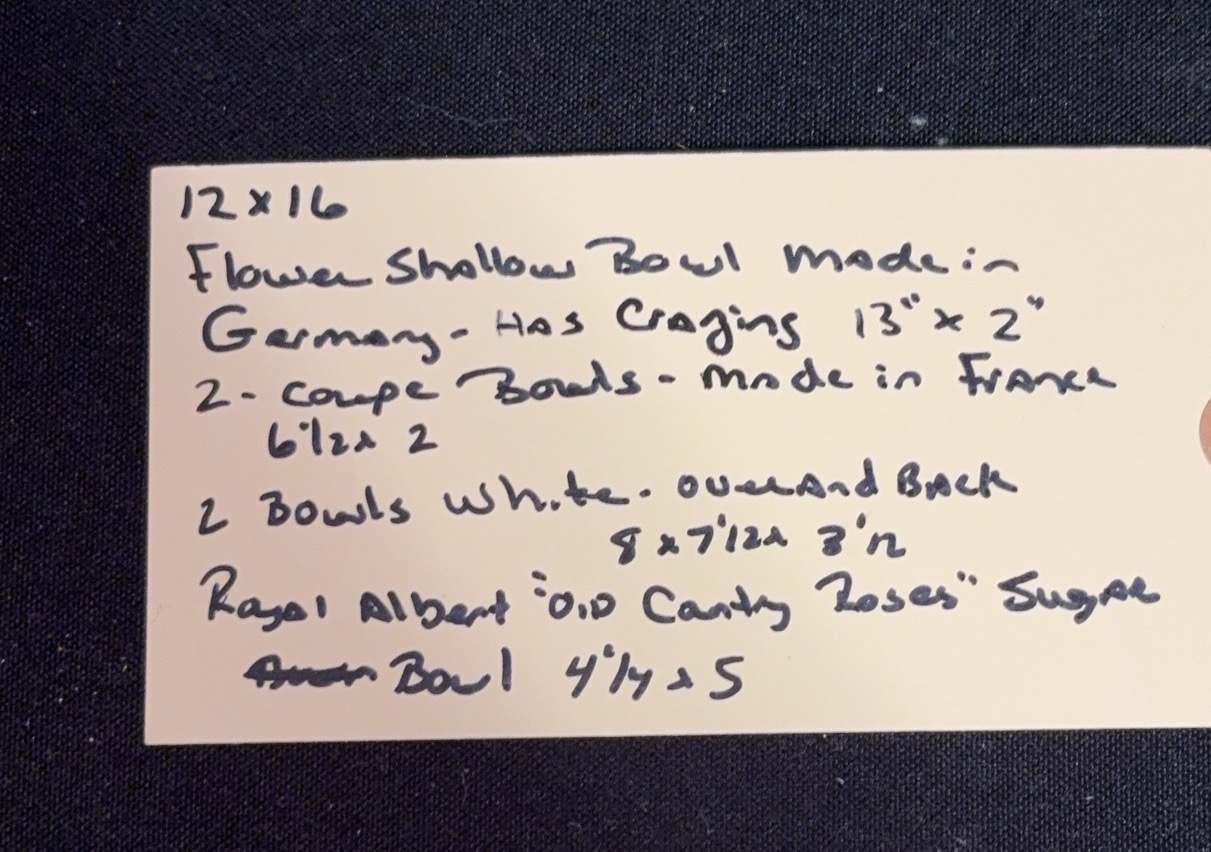 12 x 16
Flower Shallow Bowl made in
Germany - Has Crazing 13" x 2"
2 - Coupe Bowls - made in France
6 1/2 x 2
2 Bowls White - over And BAck
8 x 7 1/2 x 3 1/2
Royal Albert "Old Contry Roses" Sugar
Bowl 4 1/4 x 5